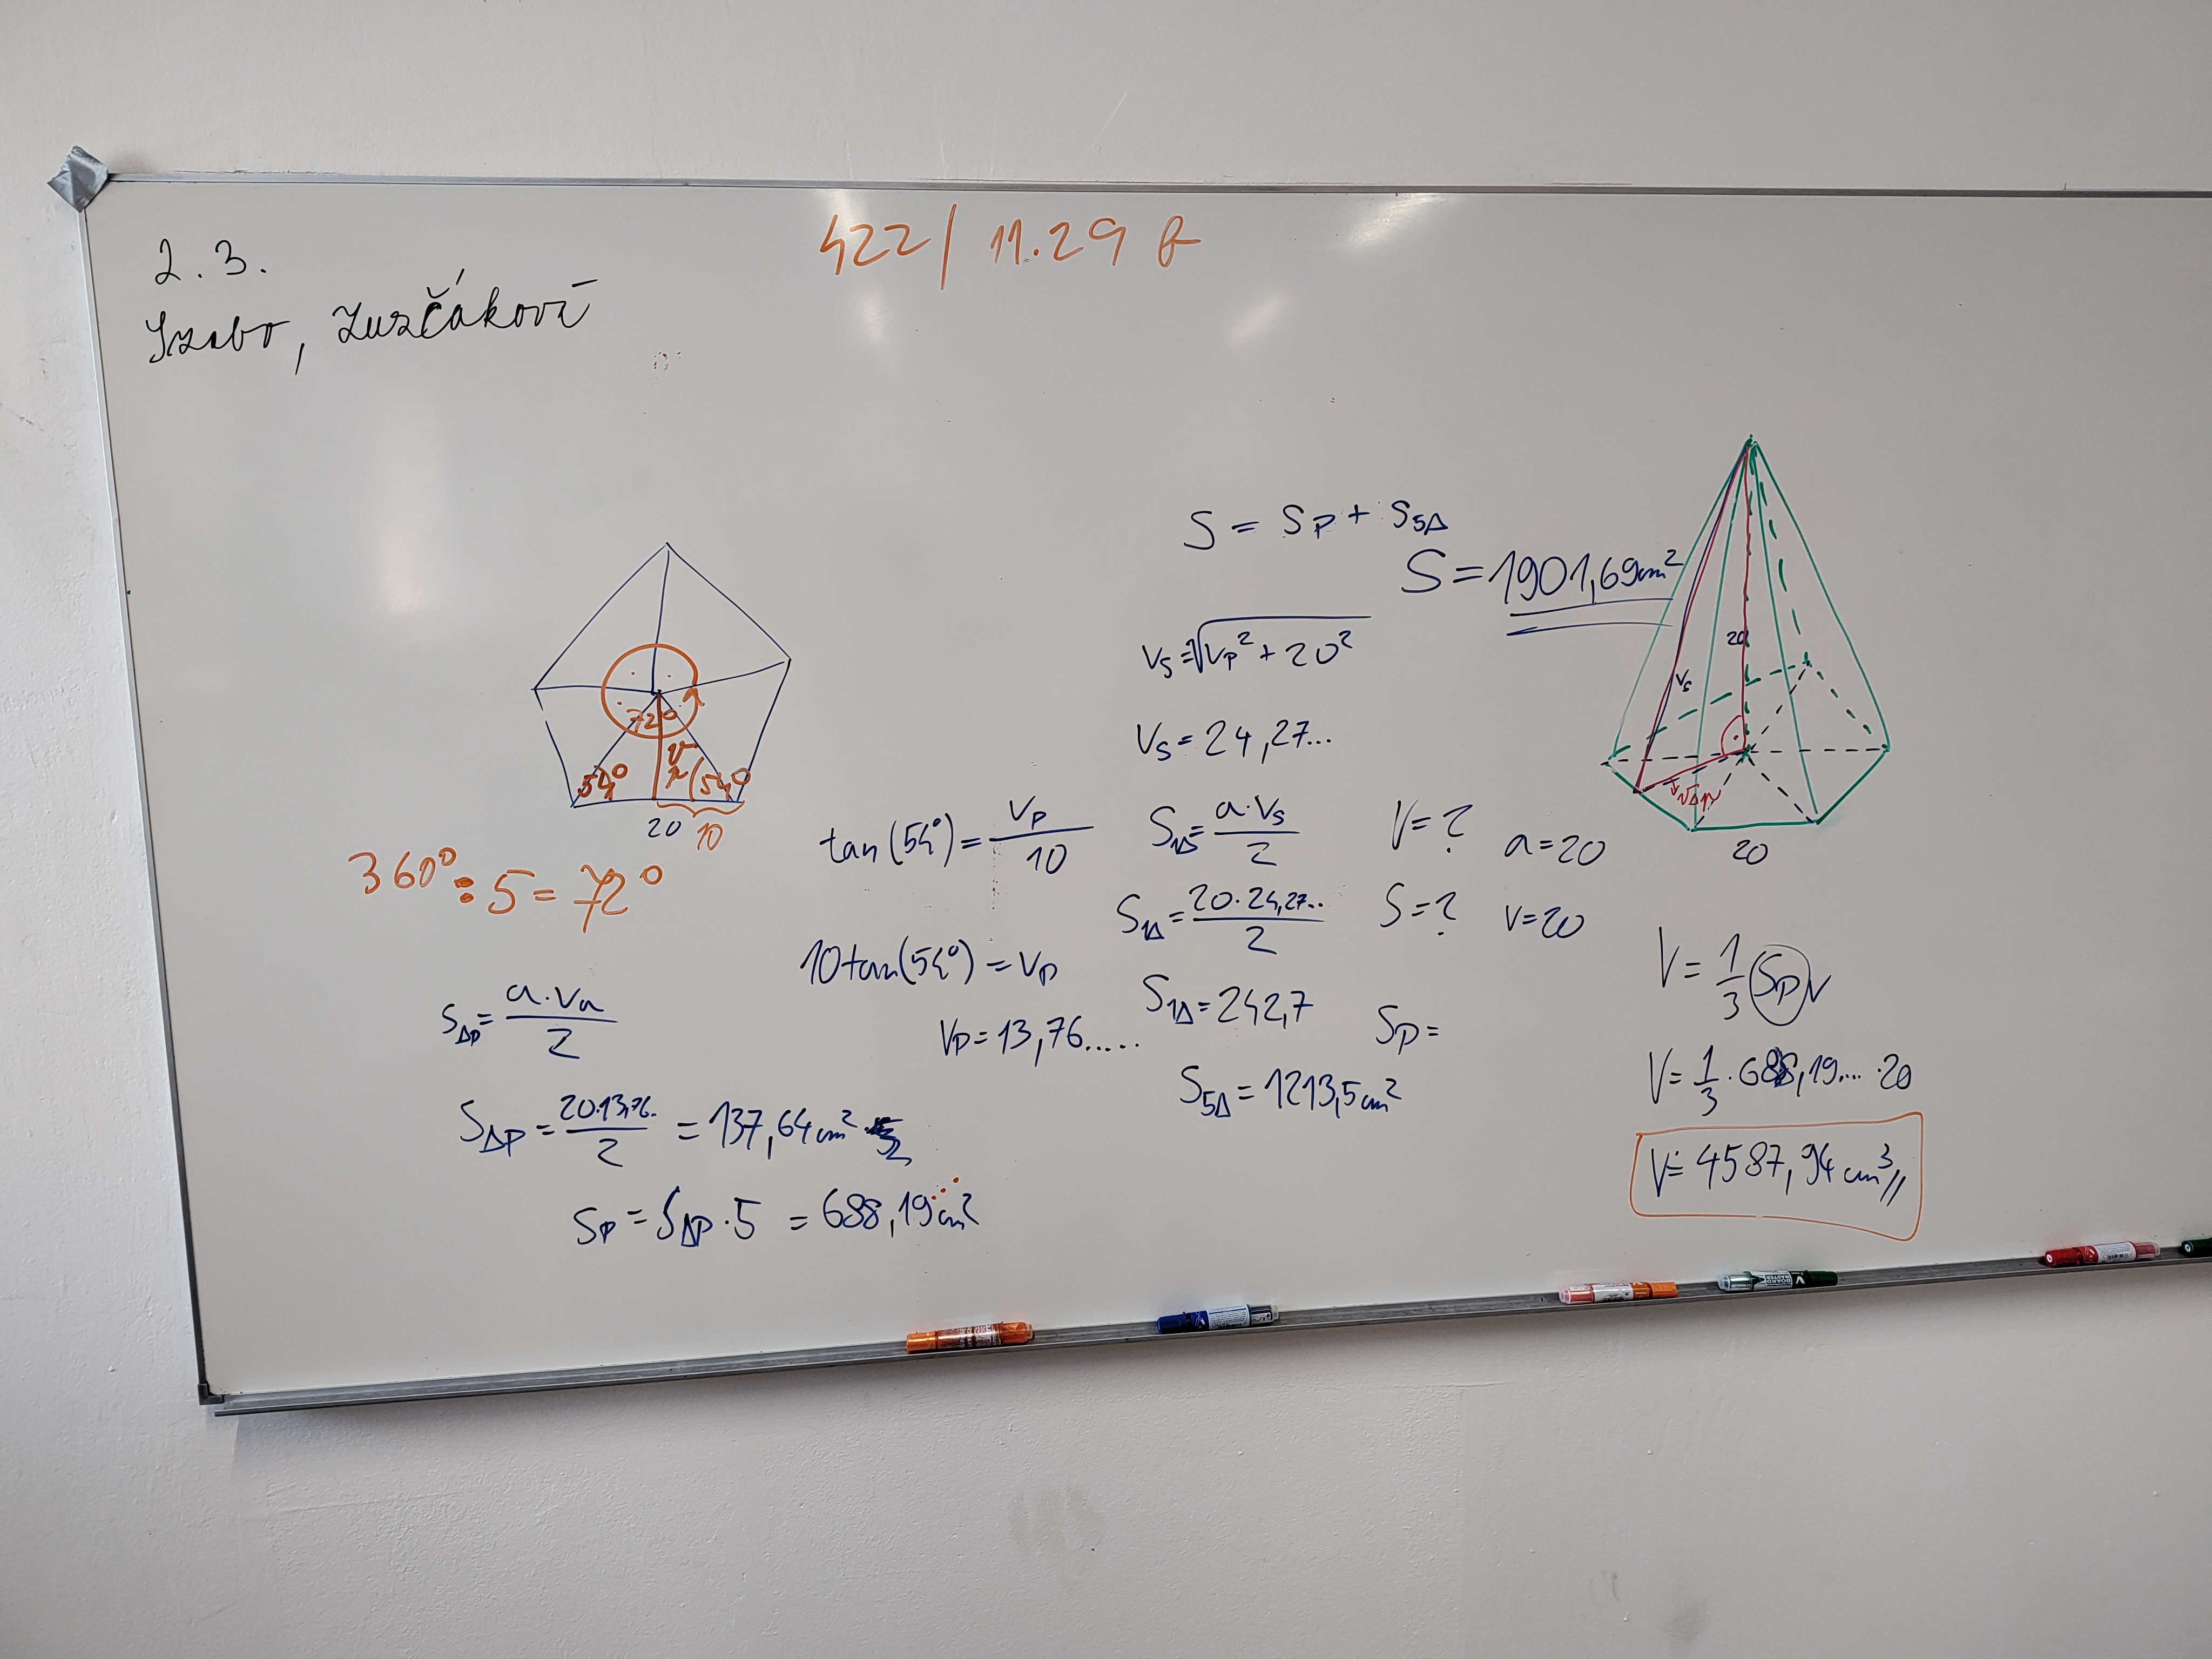 2.3.
Szabo, Zuzčáková
422/ 11.29 b
72°
54°
54°
20
10
360° : 5 = 72°
S△p = a·va / 2
S△p = 20·13,76.. / 2 = 137,64 cm²
Sp = S△p · 5 = 688,19... cm²
tan(54°) = vp / 10
10tan(54°) = vp
vp = 13,76.....
S = Sp + S5△
S = 1901,69 cm²
vs = √vp² + 20²
vs = 24,27...
S1△ = a·vs / 2
S1△ = 20·24,27... / 2
S1△ = 242,7
S5△ = 1213,5 cm²
V = ?
a = 20
S = ?
v = 20
Sp =
20
vs
v△p
20
V = 1/3 Sp v
V = 1/3 · 688,19.... · 20
V ≐ 4587,94 cm³